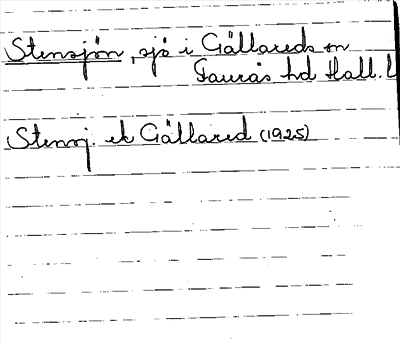 Stensjön, sjö i Gällareds sn
Faurås hd Hall. l
Stensj. ek Gällared (1925)